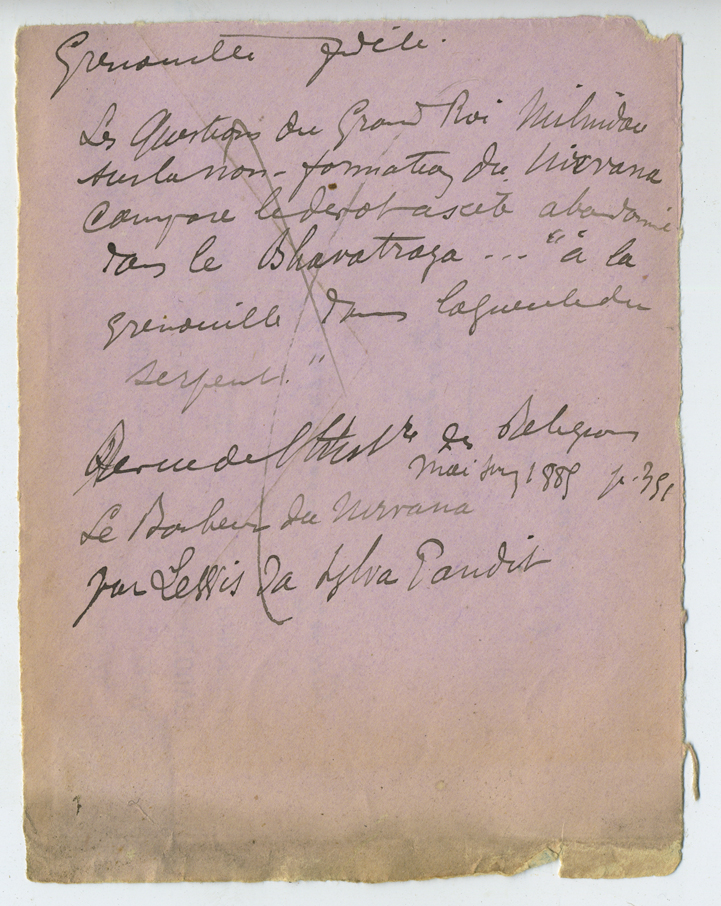 Grenouille fidèle.
Les Questions du Grand Roi Milindou
sur la non-formation du Nirvana
compare le dévot ascète abandonné
dans le Bhavatraga ... "à la
grenouille dans la gueule du
serpent."
Revue de l'Hist^re des Religions
Mai Juin 1885 p. 351
Le Bonheur du Nirvana
par Lewis Da Sylva Pandit